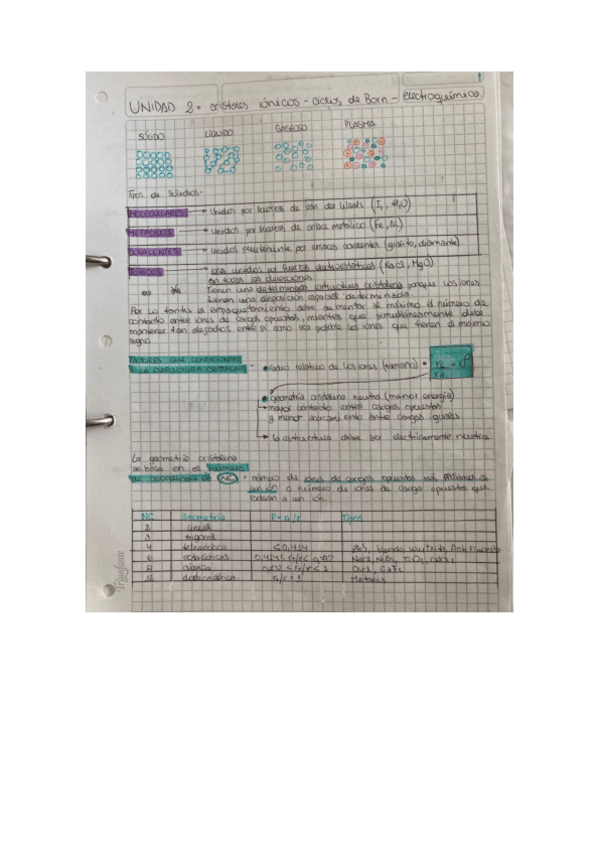 UNIDAD 2. cristales iónicos - ciclos de Born - electroquímica.
SÓLIDO LÍQUIDO GASEOSO PLASMA
Tipos de sólidos.
MOLECULARES unidos por fuerzas de Van der Waals (I₂, H₂O)
METÁLICOS unidos por fuerzas de enlace metálico (Fe, Ni)
COVALENTES unidos fuertemente por enlaces covalentes (grafito, diamante).
IÓNICOS iones unidos por fuerzas electrostáticas (NaCl, MgO)
en todas las direcciones
Tienen una determinada estructura cristalina porque los iones
tienen una disposición espacial determinada
Por lo tanto el empaquetamiento debe aumentar al máximo el número de
contacto entre iones de cargas opuestas, mientras que simultáneamente debe
mantener tan alejados entre sí como sea posible los iones que tienen el mismo
signo.
FACTORES QUE CONDICIONAN
LA ESTRUCTURA CRISTALINA
radio relativo de los iones (tamaño)
geometría cristalina neutra (menor energía)
mayor contacto entre cargas opuestas
y menor entre cargas iguales
la estructura debe ser eléctricamente neutra
La geometría cristalina
se basa en el número
de coordinación (NC) = número de iones de cargas opuestas más próximos a
un ión o número de iones de carga opuestas que
rodean a un ión.
NC Geometría Tipos
2 lineal
3 trigonal
4 tetraédrica <0,414 ZnS, blenda, wurtzita, Anti Fluorita
6 octaédricas
8 cúbica
12 dodecaédrica = 1 Metales